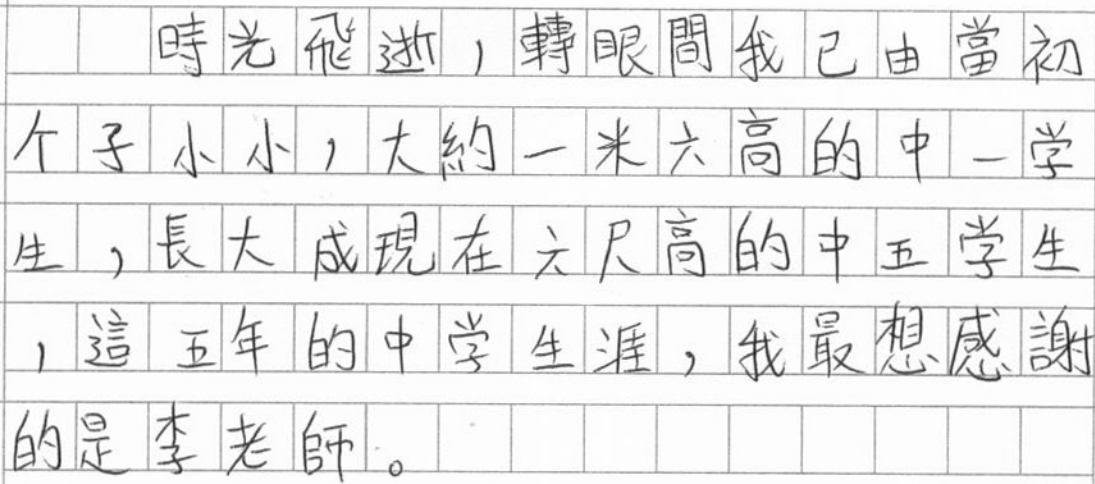 時光飛逝，轉眼間我已由當初
个子小小，大約一米六高的中一学
生，長大成現在六尺高的中五学生
，這五年的中学生涯，我最想感謝
的是李老師。